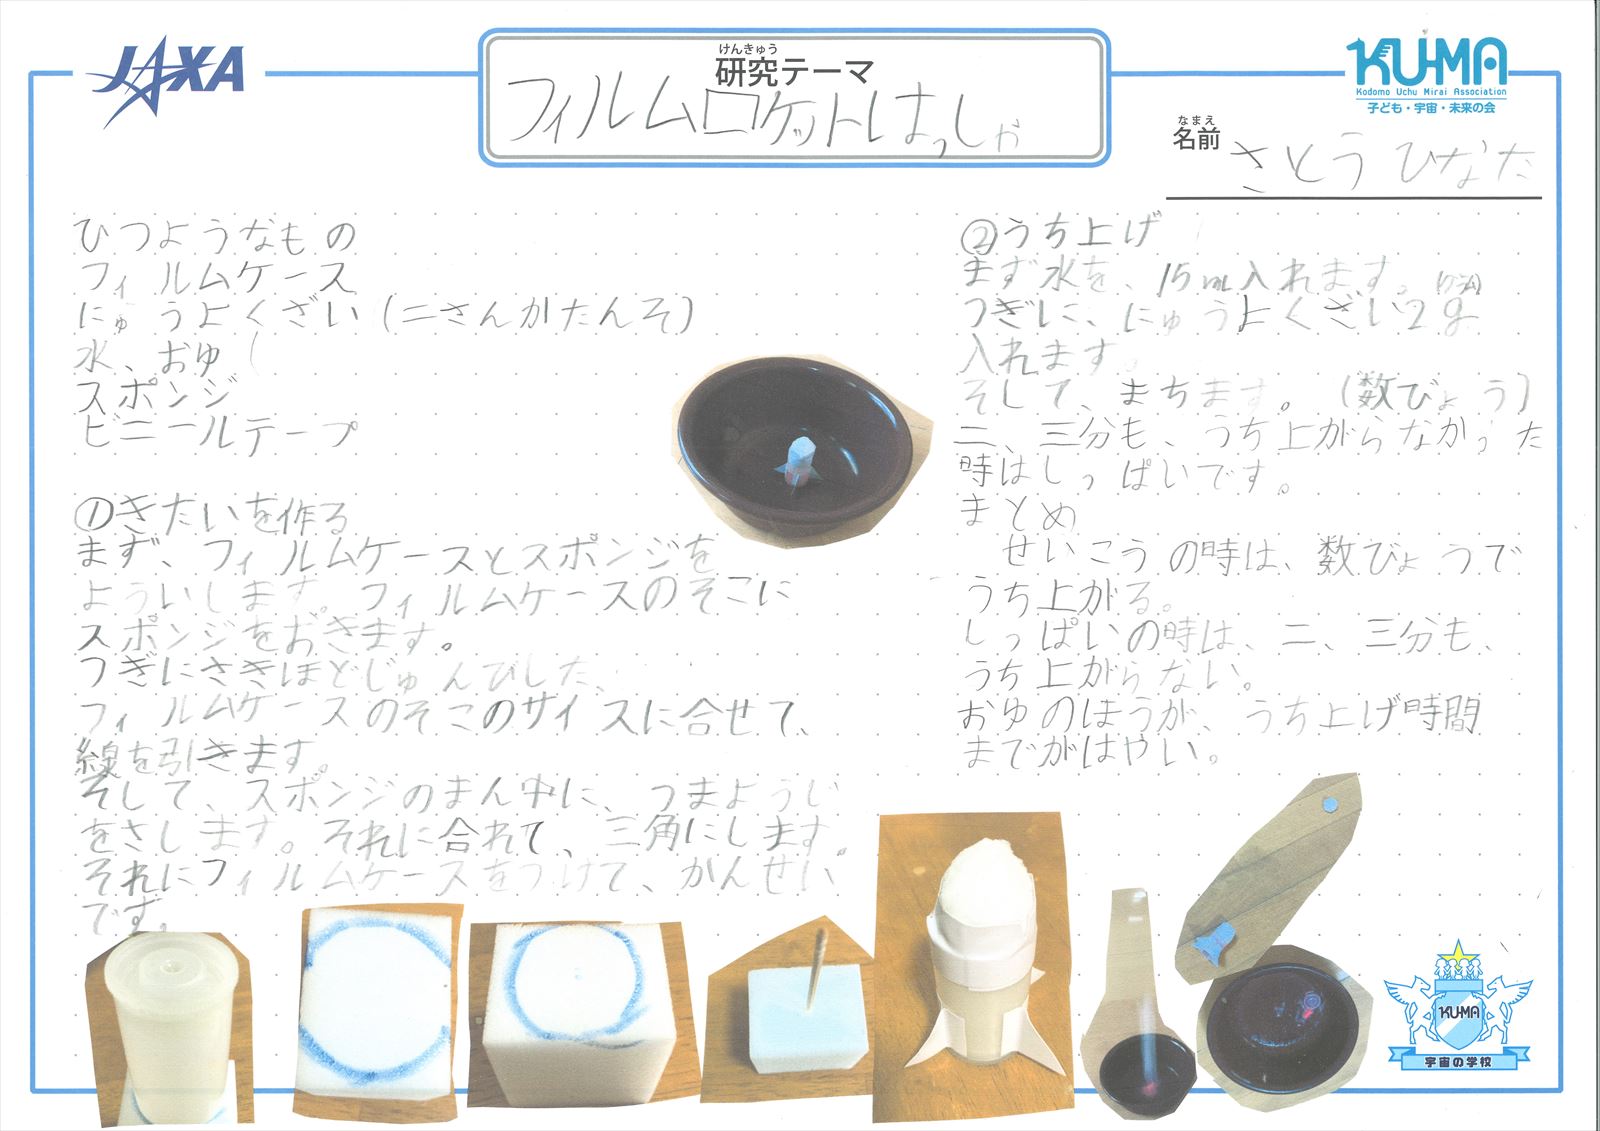 JAXA
けんきゅう
研究テーマ
フィルムロケットはっしゃ
KU-MA
Kodomo Uchu Mirai Association
子ども・宇宙・未来の会
なまえ
名前
さとうひなた
ひつようなもの
フィルムケース
にゅうよくざい(二さんかたんそ)
水、おゆ
スポンジ
ビニールテープ
①きたいを作る
まず、フィルムケースとスポンジを
よういします。フィルムケースのそこに
スポンジをおきます。
つぎにさきほどじゅんびした、
フィルムケースのそこのサイズに合せて、
線を引きます。
そして、スポンジのまん中に、つまようじ
をさします。それに合れて、三角にします。
それにフィルムケースをつけて、かんせい
です。
②うち上げ
まず水を、15mL入れます。
つぎに、にゅうよくざい2g
入れます。
そして、まちます。(数びょう)
二、三分も、うち上がらなかった
時はしっぱいです。
まとめ
せいこうの時は、数びょうで
うち上がる。
しっぱいの時は、二、三分も、
うち上がらない。
おゆのほうが、うち上げ時間
までがはやい。
KU-MA
宇宙の学校